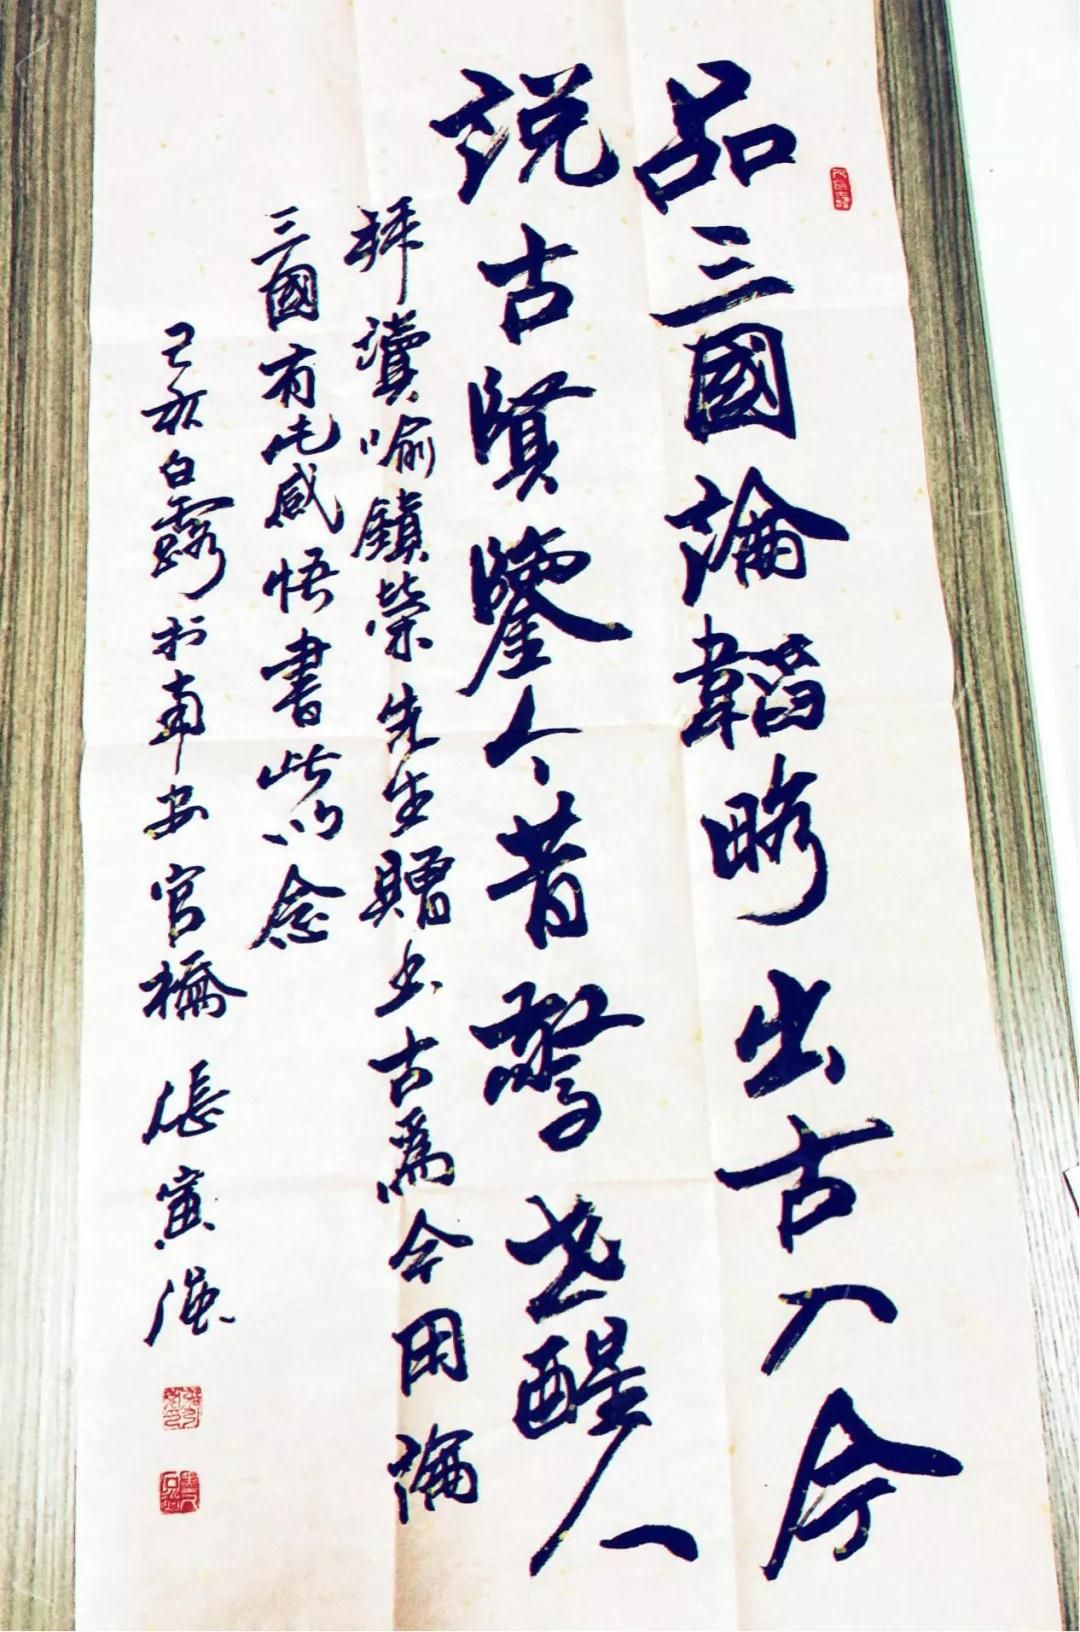 品三國論韜略出古入今
説古賢鑒今昔警世醒人
拜讀喻鎮榮先生贈书古爲今用論
三國有感悟書此以念
己亥白露於南安官橋 張寅